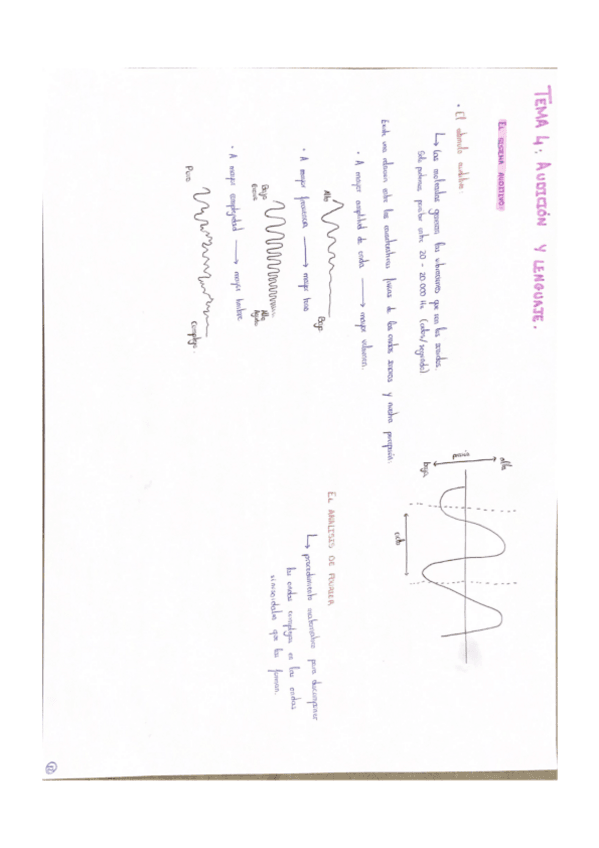 TEMA 4: AUDICIÓN Y LENGUAJE.
EL SISTEMA AUDITIVO
• El estímulo auditivo:
↳ Las moléculas generan las vibraciones que son los sonidos.
Solo podemos percibir entre 20 - 20000 Hz (ciclos/segundo)
Existe una relación entre las características físicas de las ondas sonoras y nuestra percepción.
• A mayor amplitud de onda → mayor volumen.
Alto
Bajo
• A mayor frecuencia → mayor tono
Baja
Alta
Aguda
• A mayor complejidad → mayor timbre.
Puro
Complejo.
alta
baja
ciclo
EL ANÁLISIS DE FOURIER
↳ procedimiento matemático para descomponer
las ondas complejas en las ondas
sinusoidales que las forman.